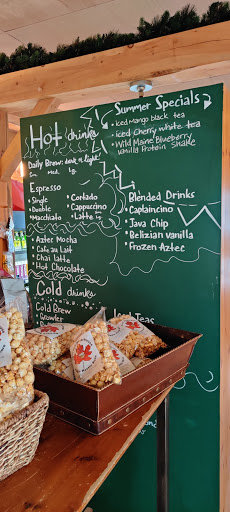 Hot drinks
Daily Brew: dark or light
Sm. med. Lg.
Espresso
• Single
• Double
• Macchiato
• Cortado
• Cappuccino
• Latte
• Aztec Mocha
• Cafe au Lait
• Chai latte
• Hot Chocolate
Cold drinks
Cold Brew
Growler
Summer Specials
• iced Mango black tea
• iced Cherry white tea
• Wild Maine Blueberry
Vanilla Protein Shake
Blended Drinks
• Captaincino
• Java Chip
• Belizian Vanilla
• Frozen Aztec
Iced Teas